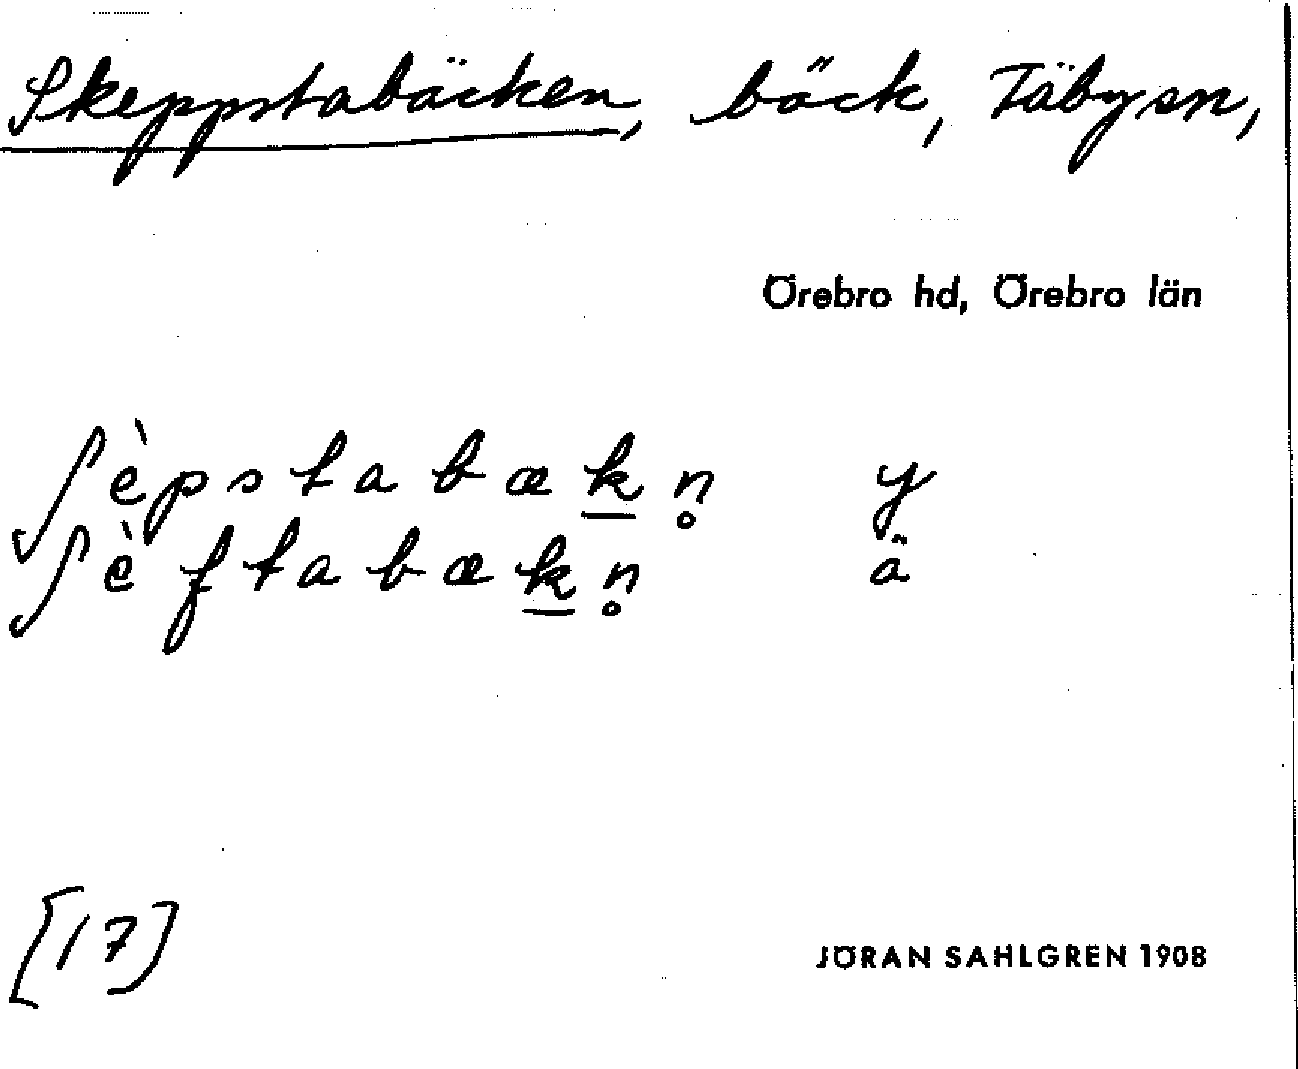 Skeppstabäcken, bäck, Täby sn,
Örebro hd, Örebro län
ʃèpstabæk̲n̥ y
ʃèftabæk̲n̥ ä
[17]
JÖRAN SAHLGREN 1908